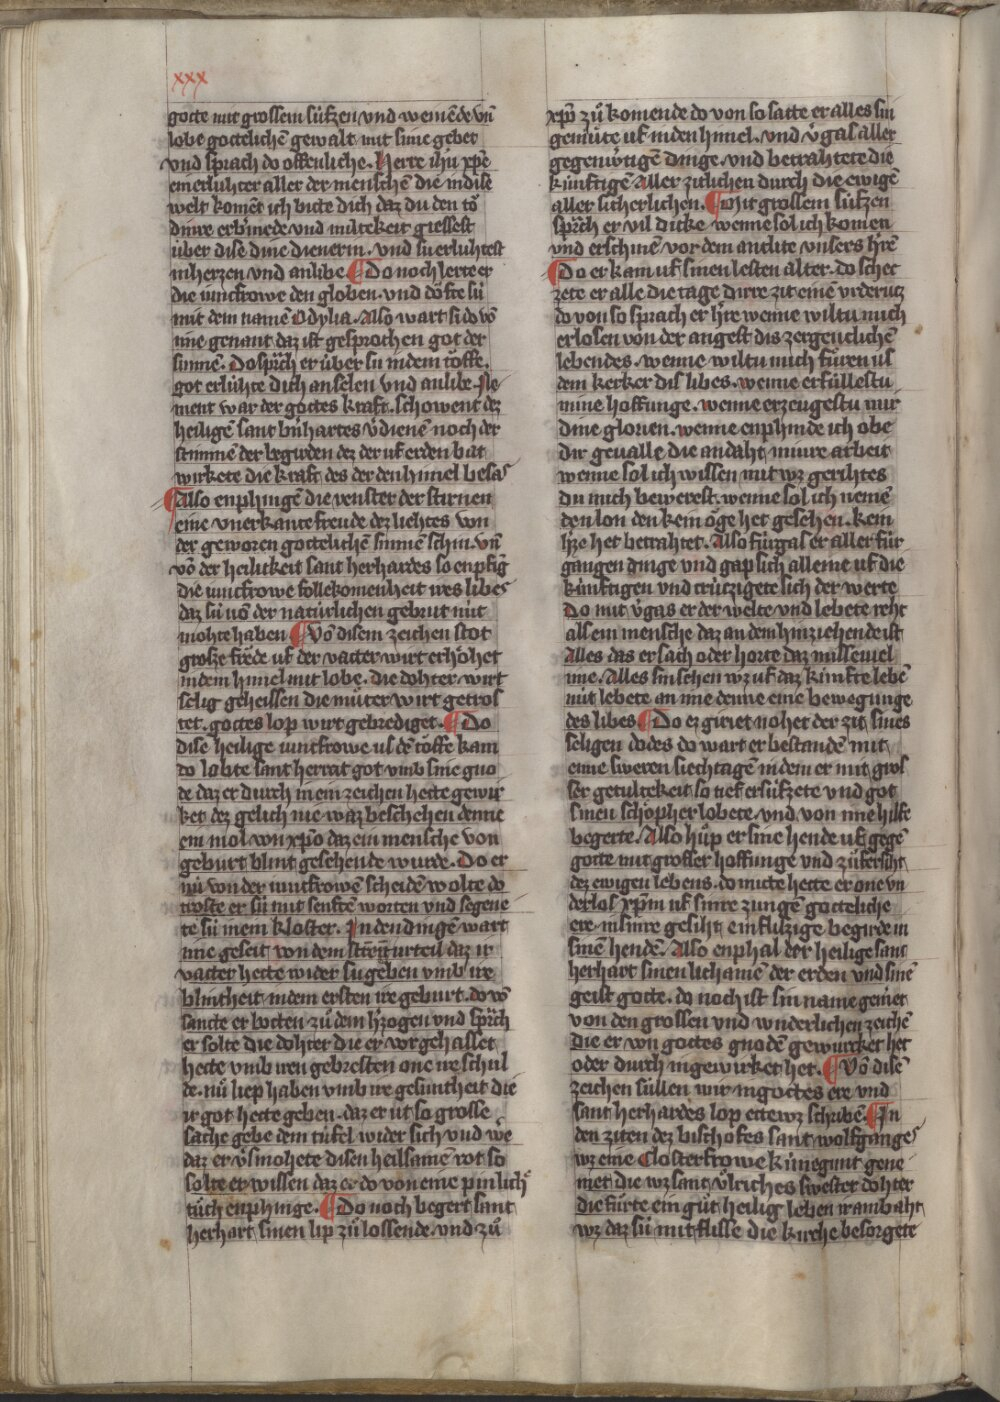 xxx
gotte mit grossem súfzen vnd weinēde vn̄
lobe gottelichē gewalt mit sime gebet
vnd sprach do offenliche. Herre ihū xpē
ein erluhter aller der menschē die in dise
welt komēt ich bitte dich daz du den tǒ
dinre erbʾmede vnd miltekeit giessest
über dise dine dienerin. vnd sú erluhtest
in herzen vnd an libe. ¶ Do noch lerte er
die iuncfrowe den globen. vnd dǒfte sú
mit dem namē Odylia. Also wart si do vō
ime genant daz ist gesprochen got der
sunnē. Do sprach er úber sú in dem tǒffe.
got erlúhte dich an selen vnd an libe. Ne
ment war der gottes kraft. schowent dez
heiligē sant bʾnhartes vʾdienē noch der
stimmē der begirden dez der uf erden bat
wirkete die kraft des der den himel besas
¶ Also enphingē die venster der stirnen
eine vnerkante freude dez lichtes von
der geworen gottelichē sunnē schin. vn̄
vō der heilikeit sant herhardes so enpfīg
die iuncfrowe follekomenheit wes libes
daz sú vō der natúrlichen geburt nút
mohte haben ¶ Vō disem zeichen stot
grosze frēde uf der vatter wirt erhǒhet
in dem himel mit lobe. die dohter wirt
selig geheissen die mūter wirt getros
tet. gottes lop wirt gebrediget. ¶ Do
dise heilige iuncfrowe us dē tǒffe kam
do lobte sant herrat got vmb sine gno
de daz er durch in ein zeichen hette gewir
ket dez gelich nie waz beschehen denne
ein mol von xp̄o daz ein mensche von
geburt blint gesehende wurde. Do er
nú von der iuncfrowē scheidē wolte do
troste er sú mit senftē worten vnd segene
te sú in em kloster. In den dingē wart
ime geseit von dem strēgē urteil daz ir
vatter hette wider sú geben vmb ire
blintheit in dem ersten ire geburt. do vō
sante er botten zů dem hʾzogen vnd sprach
er solte die dohter die er vor gehasset
hette vmb iren gebresten one ire schul
de. nů liep haben vmb ire gesuntheit die
ir got hette geben. daz er út so grosse
sache gebe dem túfel wider sich vnd wē
daz er vʾsmohete disen heilsamē rot so
solte er wissen daz er do von eine pinlich
túch enphinge. ¶ Do noch begert sant
herhart sinen lip zů lossende. vnd zů
xpō zů komende do von so satte er alles sin
gemúte uf in den himel. vnd vʾgas aller
gegenwʾtigē dinge. vnd betrahtete die
kúnftigē Aller zitlichen durch die ewigē
aller sicherlichen. ¶ Mit grossem súfzen
sprach er vil dicke wenne sol ich komen
vnd erschinē vor dem antlite vnsers hʾrē
¶ Do er kam uf sinen lesten alter. do schet
zete er alle die tage dirre zit einē vrdrutz
do von so sprach er hʾre wenne wiltu mich
erlosen von der angest dis zergenclichē
lebendes. wenne wiltu mich fůren us
dem kerker dis libes. wenne erfúllestu
mine hoffunge. wenne erzeugestu mir
dine glorien. wenne enphinde ich obe
dir gevalle die andaht minre arbeit
wenne sol ich wissen mit wz gerihtes
du mich bewerest. wenne sol ich nemē
den lon den kein ǒge het gesehen. kein
hʾze het betrahtet. Also fúrgas er aller fúr
gangen dinge vnd gap sich alleine uf die
kúnftigen vnd trutzigete sich der werte
Do mit vʾgas er der welte vnd lebete reht
als ein mensche daz an dem hinziehende ist
Alles das er sach oder horte daz misseviel
ime. Alles sin sehen wz uf daz kúnfte lebē
nút lebete an ime denne eine bewegunge
des libes ¶ Do ez gitiet nohet der zit sines
seligen dodes do wart er bestandē mit
eime sweren siechtagē in dem er mit gros
ser getultekeit so tief ersúfzete vnd got
sinen schopher lobete. vnd von ime hilfe
begerte. Also hůp er sine hende uf gegē
gotte mit grosser hoffunge vnd zůfersiht
dez ewigen lebens. do mitte hette er one vn
derlos xp̄m uf sinre zungē gotteliche
ere. in sinre gesiht ein flizige begirde in
sinē hendē. Also enphal der heilige sant
herhart sinen lichamē der erden vnd sinē
geist gotte. do noch ist sin name gemēt
von den grossen vnd wnderlichen zeichē
die er von gottes gnodē gewurcket het
oder durch in gewirket het. ¶ Vō disē
zeichen súllen wir in gottes ere vnd
sant herhardes lop ettewz schribē. ¶ In
den ziten dez bischofes sant wolfganges
wz eine Closterfrowe kúnegunt gene
met die wz sant vͦlriches swester dohter
die fůrte ein gůt heilig leben ir ambaht
wz daz sú mit flisse die kirche besorgete